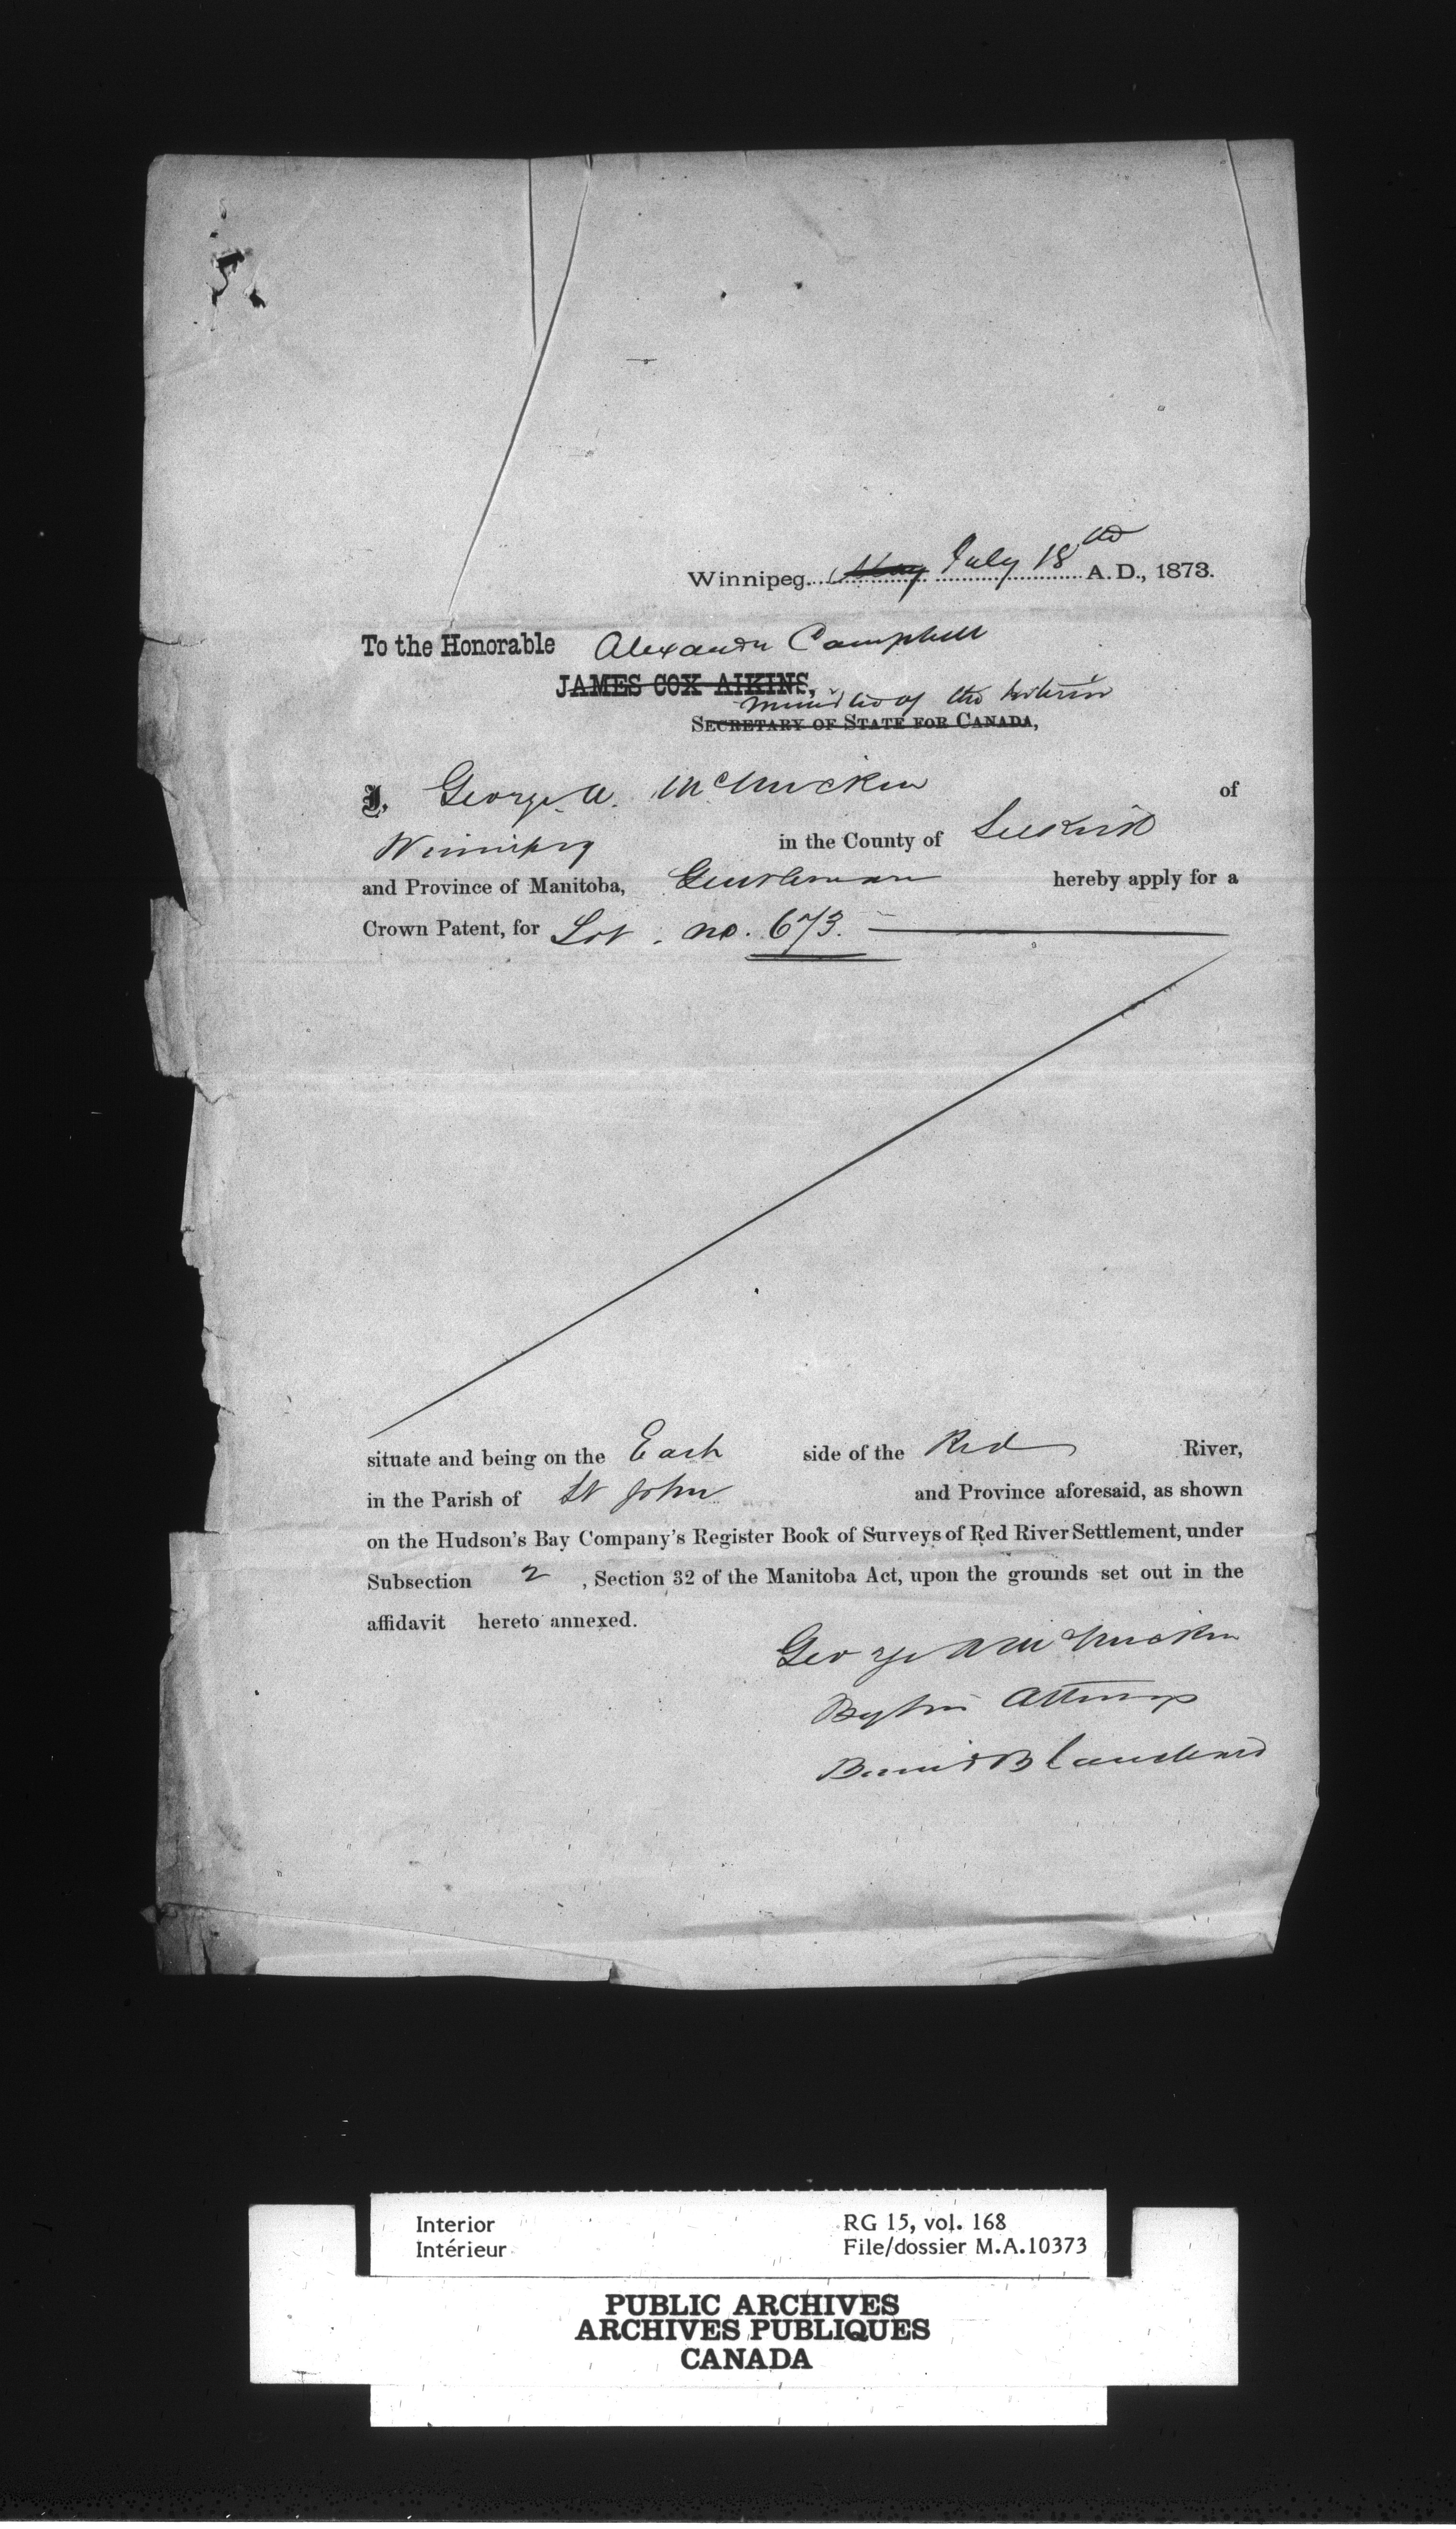 Winnipeg. May July 18th A.D., 1873.
To the Honorable Alexander Campbell
JAMES COX AIKINS,
Minister of the Interior
SECRETARY OF STATE FOR CANADA,
I, George A. McMicken of
Winnipeg in the County of Selkirk
and Province of Manitoba, Gentleman hereby apply for a
Crown Patent, for Lot no. 673.
situate and being on the East side of the Red River,
in the Parish of St John and Province aforesaid, as shown
on the Hudson's Bay Company's Register Book of Surveys of Red River Settlement, under
Subsection 2, Section 32 of the Manitoba Act, upon the grounds set out in the
affidavit hereto annexed.
George A McMicken
By his Attorneys
Bain & Blanchard
Interior RG 15, vol. 168
Intérieur File/dossier M.A.10373
PUBLIC ARCHIVES
ARCHIVES PUBLIQUES
CANADA